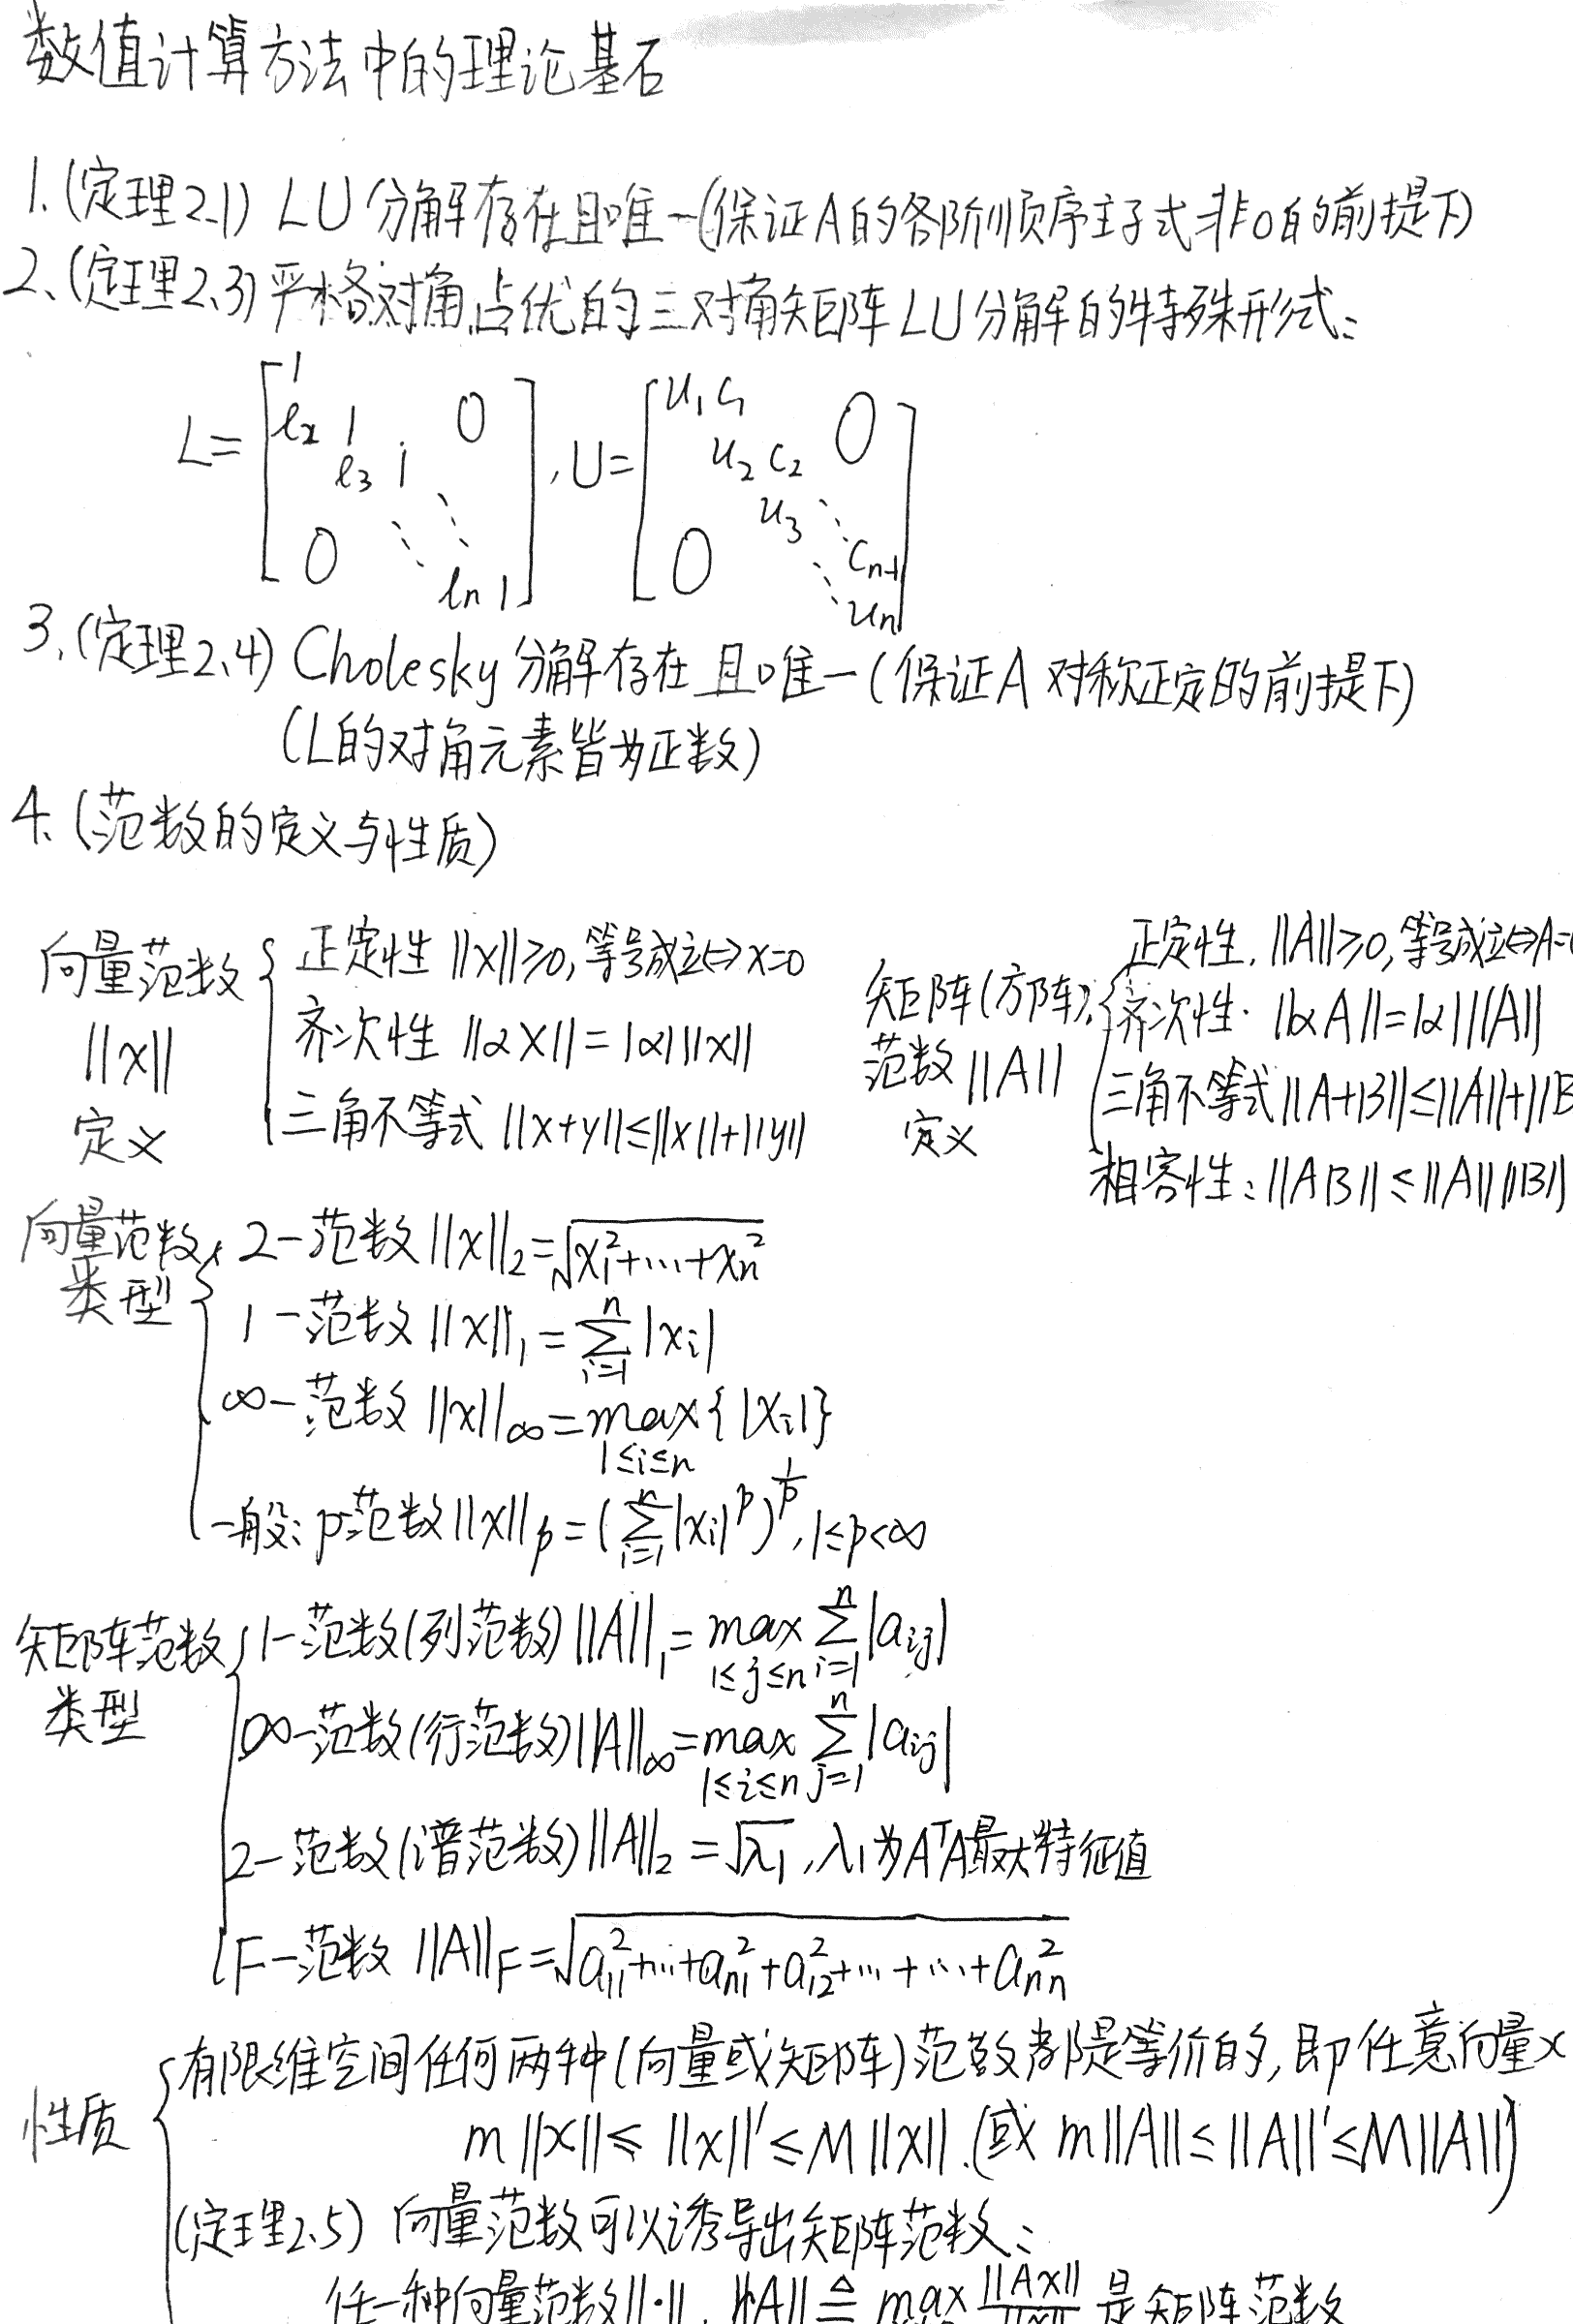 数值计算方法中的理论基石
1.(定理2.1) LU分解存在且唯一(保证A的各阶顺序主子式非0的前提下)
2、(定理2、3)严格对角占优的三对角矩阵LU分解的特殊形式:
L=[1 l₂ 1 l₃ 1 0 ⋱ ⋱ 0 lₙ 1], U=[u₁ c₁ u₂ c₂ 0 u₃ ⋱ 0 ⋱ cₙ₋₁ uₙ]
3.(定理2、4) Cholesky分解存在且唯一(保证A对称正定的前提下)
(L的对角元素皆为正数)
4.(范数的定义与性质)
向量范数 ||x|| 定义
正定性 ||x||≥0,等号成立⇔x=0
齐次性 ||αx||=|α| ||x||
三角不等式 ||x+y||≤||x||+||y||
矩阵(方阵)范数||A|| 定义
正定性. ||A||≥0,等号成立⇔A=
齐次性. ||αA||=|α| ||A||
三角不等式||A+B||≤||A||+||B
相容性:||AB||≤||A|| ||B||
向量范数类型
2-范数||x||₂=√(x₁²+…+xₙ²)
1-范数||x||₁=∑_{i=1}^{n}|xᵢ|
∞-范数||x||∞=max_{1≤i≤n}{|xᵢ|}
一般:p-范数||x||ₚ=(∑_{i=1}^{n}|xᵢ|^p)^{1/p},1≤p<∞
矩阵范数类型
1-范数(列范数)||A||₁=max_{1≤j≤n}∑_{i=1}^{n}|a_{ij}|
∞-范数(行范数)||A||∞=max_{1≤i≤n}∑_{j=1}^{n}|a_{ij}|
2-范数(谱范数)||A||₂=√λ₁,λ₁为AᵀA最大特征值
F-范数 ||A||_F=√(a₁₁²+…+a_{n1}²+a₁₂²+…+…+a_{nn}²)
性质
有限维空间任何两种(向量或矩阵)范数都是等价的,即任意向量x
m||x||≤||x||'≤M||x||.(或 m||A||≤||A||'≤M||A||)
(定理2、5) 向量范数可以诱导出矩阵范数:
任一种向量范数||·||, ||A||≜max ||Ax|| 是矩阵范数